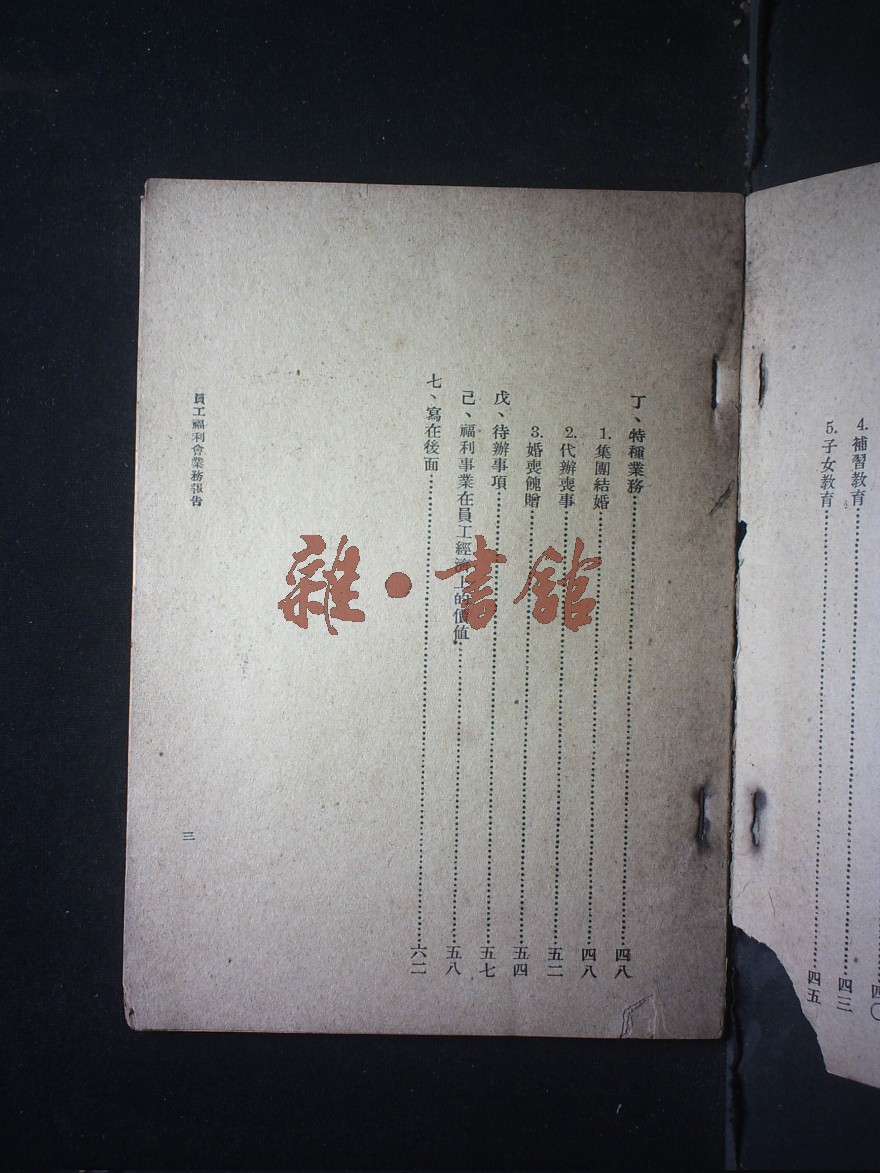 四〇
4.補習教育……四三
5.子女教育……四五
丁、特種業務……四八
1.集團結婚……四八
2.代辦喪事……五二
3.婚喪餽贈……五四
戊、待辦事項……五七
己、福利事業在員工經濟上的價值……五八
七、寫在後面……六二
員工福利會業務報告
三
雜·書館